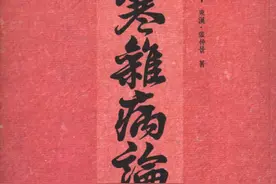 東漢·張仲景 著
寒雜病論